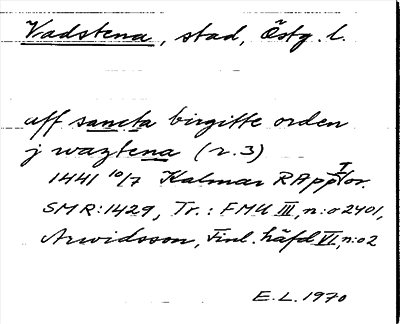 Vadstena, stad, Östg. l.
uff sancta birgitte orden
j waztena (r.3)
1441 10/7 Kalmar RApp For.
SMR:1429, Tr.: FMU III, n:o 2401,
Arwidsson, Finl. häfd VI, n:o 2
E.L. 1970